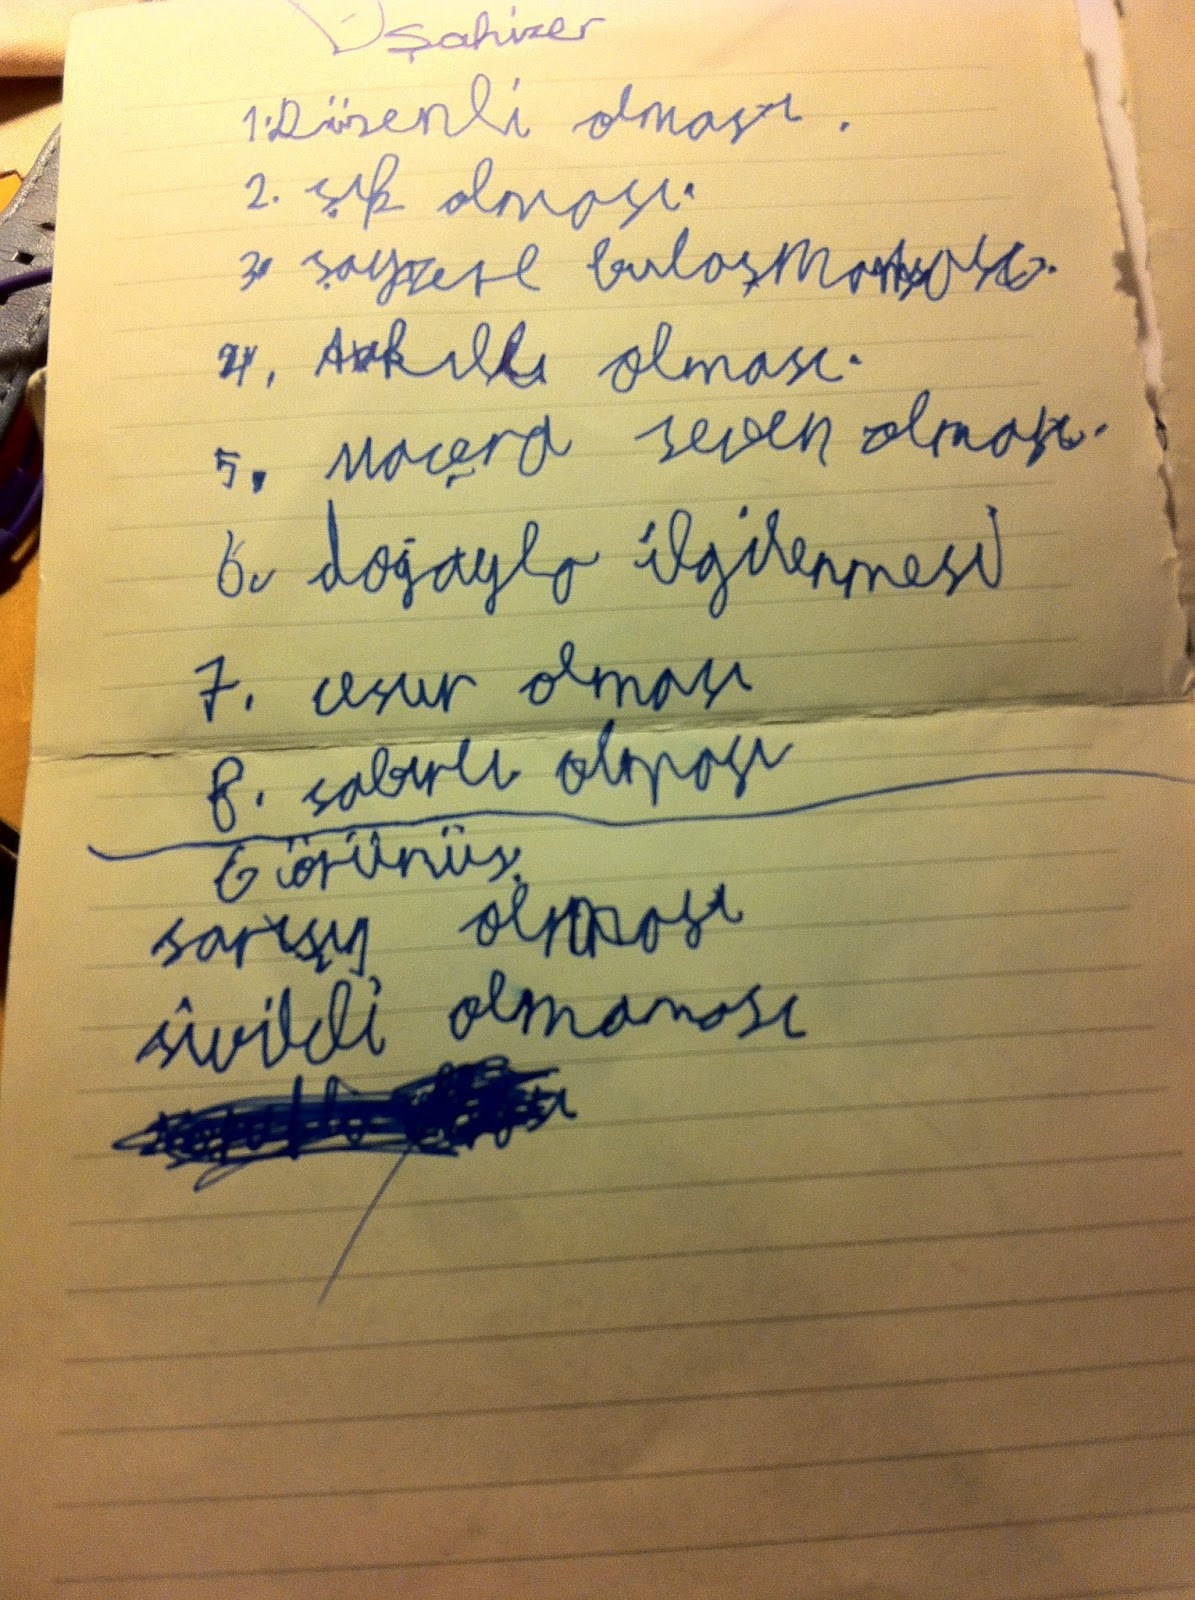 Şahizer
1. Düzenli olması.
2. şık olması.
3.
4. Akıllı olması.
5. Macera seven olması.
6. doğayla ilgilenmesi
7. cesur olması
8. sabırlı olması
Görünüş
sarışın olması
sivilcli olmaması